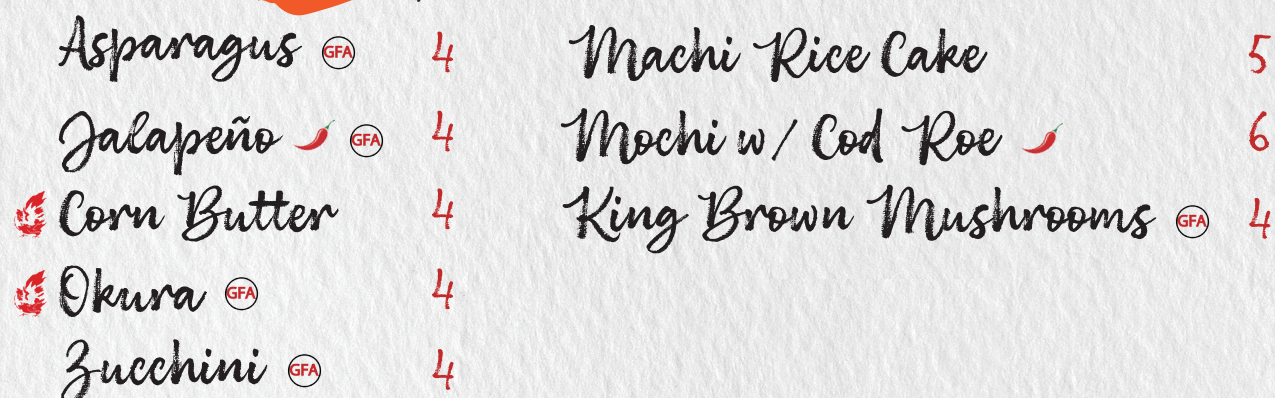 Asparagus GFA 4
Jalapeño GFA 4
Corn Butter 4
Okura GFA 4
Zucchini GFA 4
Machi Rice Cake 5
Mochi w/ Cod Roe 6
King Brown Mushrooms GFA 4